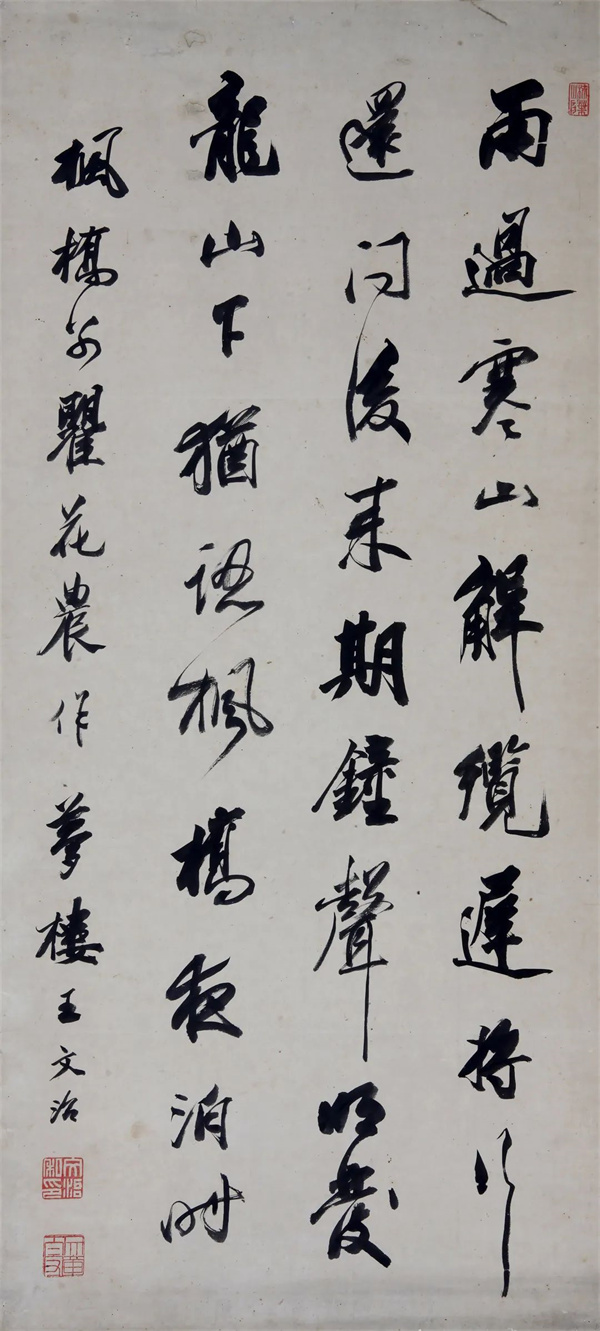 雨過寒山解纜遲將行
還問後來期鐘聲明發
龍山下猶認楓橋夜泊時
楓橋別瞿花農作 夢樓王文治